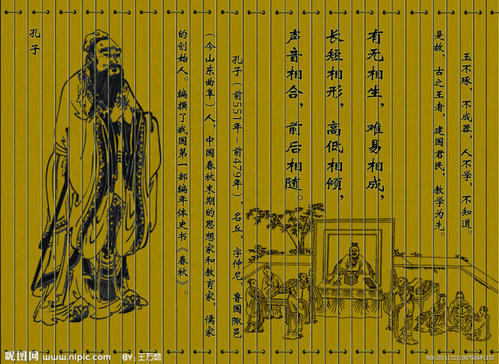 玉不琢，不成器。人不学，不知道。
是故，古之王者，建国君民，教学为先。
有无相生，难易相成，
长短相形，高低相倾，
声音相合，前后相随。
孔子（前551年-前479年），名丘，字仲尼，鲁国陬邑
（今山东曲阜）人，中国春秋末期的思想家和教育家，儒家
的创始人。编撰了我国第一部编年体史书《春秋》。
孔子
昵图网 www.nipic.com BY:王万酷